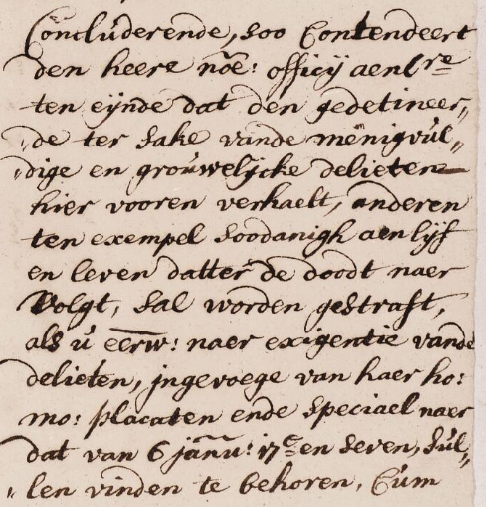 Concluderende, soo Contendeert
den heere nōe: officij aenl^re
ten eijnde dat den gedetineer„
„de ter sake vande menigvul„
„dige en grouwelijcke delieten
hier vooren verhaelt, anderen
ten exempel soodanigh aen lijf
en leven datter de doodt naer
volgt, sal worden gestraft,
als u eerw: naer exigentie vande
delieten, ingevoege van haer ho:
mo: placaten ende speciael naer
dat van 6 janu: 17^C en seven, sul„
„len vinden te behoren, Cum